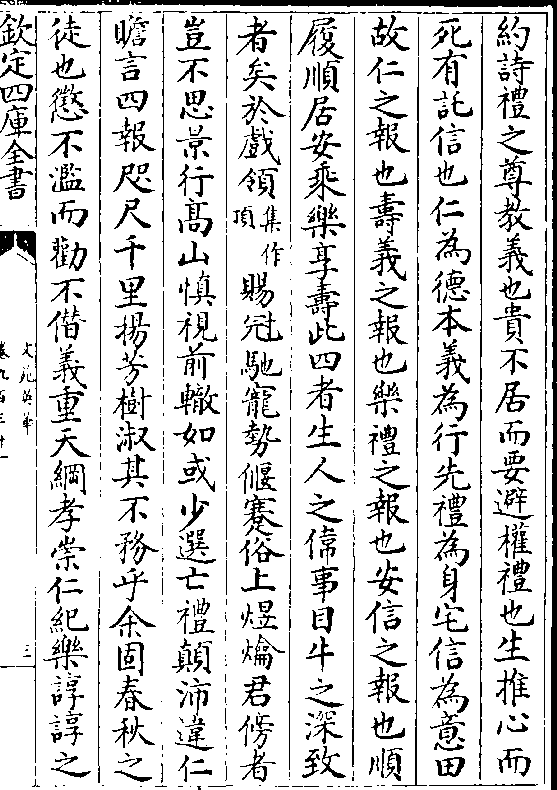 約詩禮之尊教義也貴不居而要避權禮也生推心而
死有託信也仁為德本義為行先禮為身宅信為意田
故仁之報也壽義之報也樂禮之報也安信之報也順
履順居安乘樂享壽此四者生人之偉事目牛之深致
者矣於戲領集作項賜冠馳寵勢偃蹇俗上煜爚君傍者
豈不思景行高山慎視前轍如或少選亡禮顛沛違仁
瞻言四報咫尺千里揚芳樹淑其不務乎余固春秋之
徒也懲不濫而勸不僭義重天綱孝崇仁紀樂諄諄之
欽定四庫全書
文苑英華
卷九百三十一
三